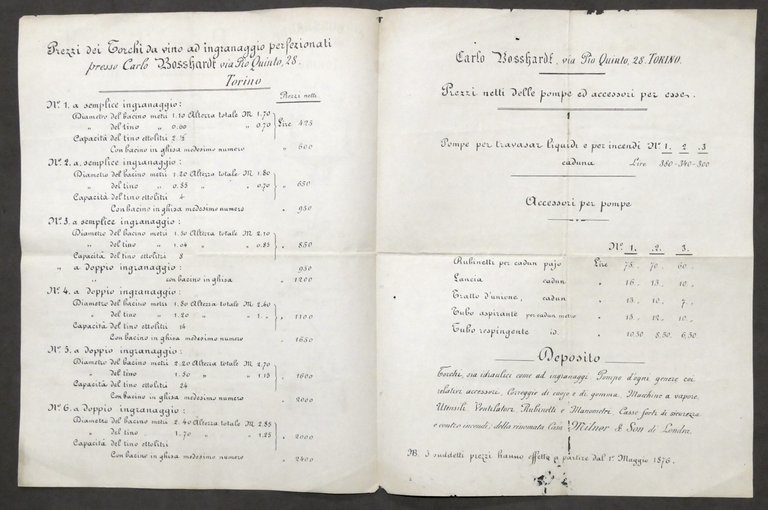 Prezzi dei Torchi da vino ad ingranaggio perfezionati
presso Carlo Bosshardt via Pio Quinto, 28.
Torino
Prezzi netti
Nº 1. a semplice ingranaggio:
Diametro del bacino metri 1.10 Altezza totale M 1.70
" del tino " 0.60 " " 0.70 Lire 425
Capacità del tino ettolitri 2 ½
Con bacino in ghisa medesimo numero " 600
Nº 2. a semplice ingranaggio:
Diametro del bacino metri 1.20 Altezza totale M 1.80
" del tino " 0.85 " " 0.70 " 650
Capacità del tino ettolitri 4
Con bacino in ghisa medesimo numero " 950
Nº 3. a semplice ingranaggio:
Diametro del bacino metri 1.50 Altezza totale M 2.10
" del tino " 1.04 " " 0.85 " 850
Capacità del tino ettolitri 8
" a doppio ingranaggio: 950
" con bacino in ghisa " 1200
Nº 4. a doppio ingranaggio:
Diametro del bacino metri 1.80 Altezza totale M 2.40
" del tino " 1.20 " " 1. " " 1100
Capacità del tino ettolitri 14
Con bacino in ghisa medesimo numero " 1650
Nº 5. a doppio ingranaggio:
Diametro del bacino metri 2.20 Altezza totale M 2.70
" del tino " 1.50 " " 1.15 " 1600
Capacità del tino ettolitri 24
Con bacino in ghisa medesimo numero " 2000
Nº 6. a doppio ingranaggio:
Diametro del bacino metri 2.40 Altezza totale M 2.85
" del tino " 1.70 " " 1.25 " 2000
Capacità del tino ettolitri
Con bacino in ghisa medesimo numero " 2400
Carlo Bosshardt, via Pio Quinto, 28. TORINO.
Prezzi netti delle pompe ed accessori per esse.
Pompe per travasar liquidi e per incendi Nº 1. 2 .3
caduna Lire 380-340-300
Accessori per pompe
Nº 1. .2. 3.
Rubinetti per cadun pajo Lire 75. 70. 60.
Lancia cadun " 15. 13. 10.
Tratto d'unione, cadun " 13. 10. 7.
Tubo aspirante per cadun metro " 15. 12. 10.
Tubo respingente id. " 10.50 8.50 6.50
Deposito
Torchi, sia idraulici come ad ingranaggi Pompe d'ogni genere coi
relativi accessori, Correggie di cuojo e di gomma. Macchine a vapore.
Utensili Ventilatori Rubinetti e Manometri Casse forti di sicurezza
e contro incendi, della rinomata Casa Melnor & Son di Londra.
NB. I suddetti prezzi hanno effetto a partire dal 1º Maggio 1876.